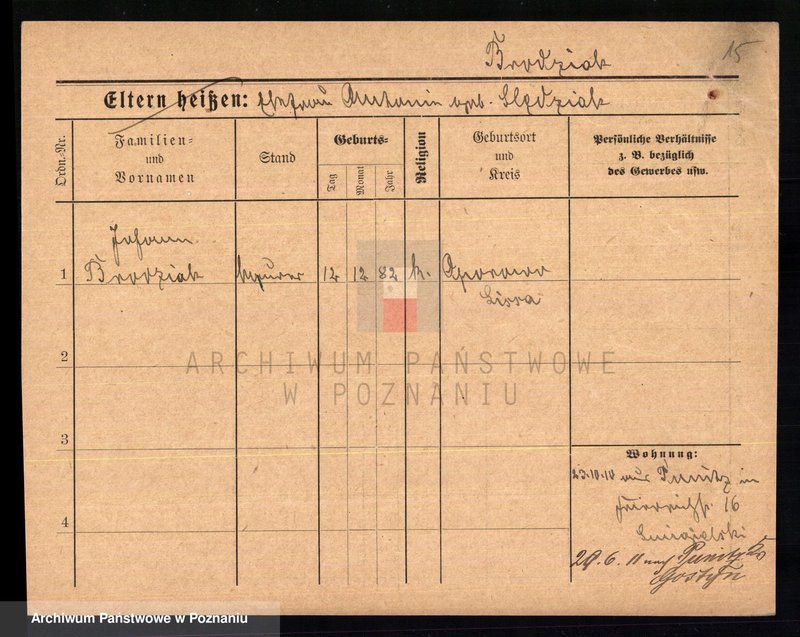 Brodziak
15
Eltern heißen: Ehefrau Antonin geb. Sledziak
Ordn.-Nr.
Familien-
und
Vornamen
Stand
Geburts-
Tag
Monat
Jahr
Religion
Geburtsort
und
Kreis
Persönliche Verhältnisse
z. B. bezüglich
des Gewerbes usw.
Johann
1 Brodziak Maurer 12 12 82 k.
Lissa
2
3
4
ARCHIWUM PAŃSTWOWE
W POZNANIU
Wohnung:
23.10.10 aus Punitz in
16
29.6.11 nach Punitz Kr
Gostyn
Archiwum Państwowe w Poznaniu